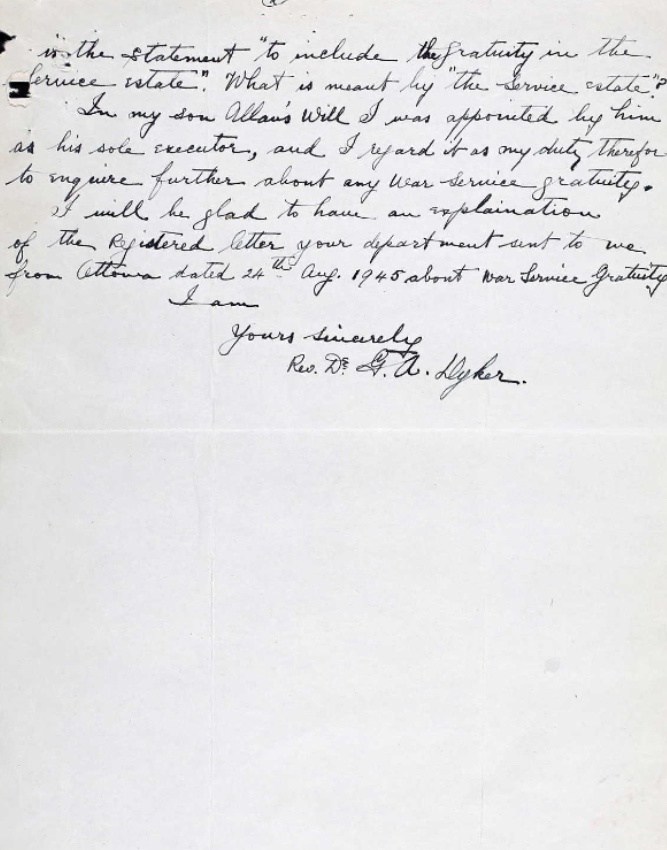 is the statement "to include the gratuity in the
Service estate". What is meant by "the service estate"?
In my son Allan's Will I was appointed by him
as his sole executor, and I regard it as my duty therefor
to enquire further about any War Service gratuity.
I will be glad to have an explaination
of the Registered letter your department sent to me
from Ottawa dated 24th Aug. 1945 about War Service Gratuity
I am
Yours sincerely
Rev. Dr. G. A. Dyker.